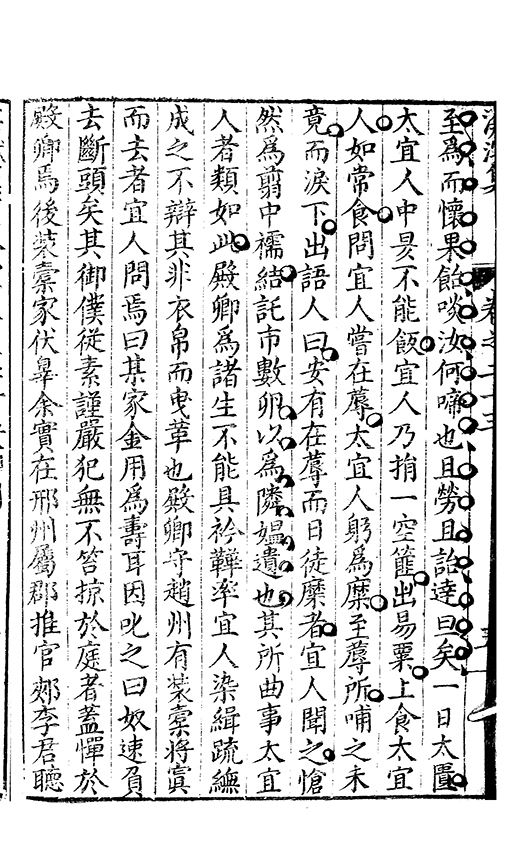 至為而懷果飴啖汝何啼也且勞且詒達曰矣一日太置
太宜人中晷不能飯宜人乃捎一空簏出易粟上食太宜
人如常食問宜人嘗在蓐太宜人躬為糜至蓐所哺之未
竟而淚下出語人曰安有在蓐而日徒糜者宜人聞之愴
然為翦中襦結託市數卵以為隣媼遺也其所曲事太宜
人者類如此殿卿為諸生不能具衿鞸率宜人染緝疏繐
成之不辯其非衣帛而曳革也殿卿守趙州有裝槖將寘
而去者宜人問焉曰某家金用為壽耳因叱之曰奴速負
去斷頭矣其御僕從素謹嚴犯無不笞掠於庭者蓋憚於
殿卿焉後裝槖家伏辜余實在邢州屬郡推官郟李君聽